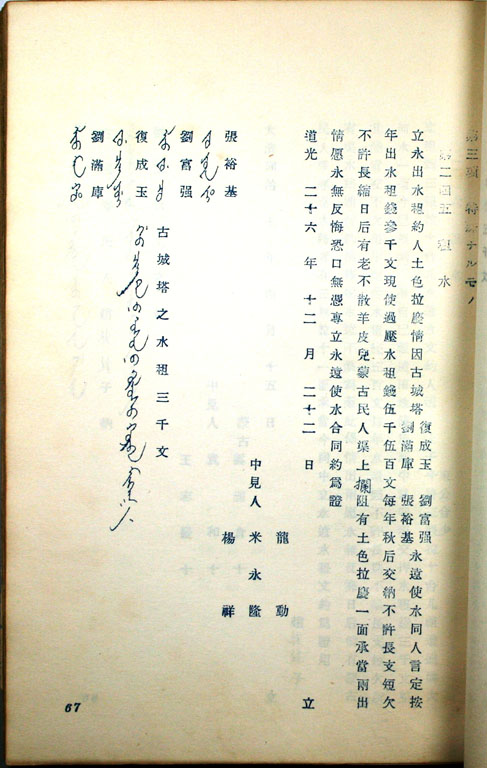 第三項 特殊ナルモノ
第二四五 租水
立永出水租約人土色拉慶情因古城塔復成玉 劉富强 劉滿庫 張裕基永遠使水同人言定按
年出水租錢參千文現使過壓水租錢伍千伍百文每年秋后交納不許長支短欠
不許長縮日后有老不散羊皮兒蒙古民人渠上攔阻有土色拉慶一面承當兩出
情愿永無反悔恐口無憑專立永遠使水合同約爲證
道光二十六年十二月二十二日 立
龍動
中見人 米永隆
楊祥
張裕基
劉富强
復成玉
劉滿庫
古城塔之水租三千文
67